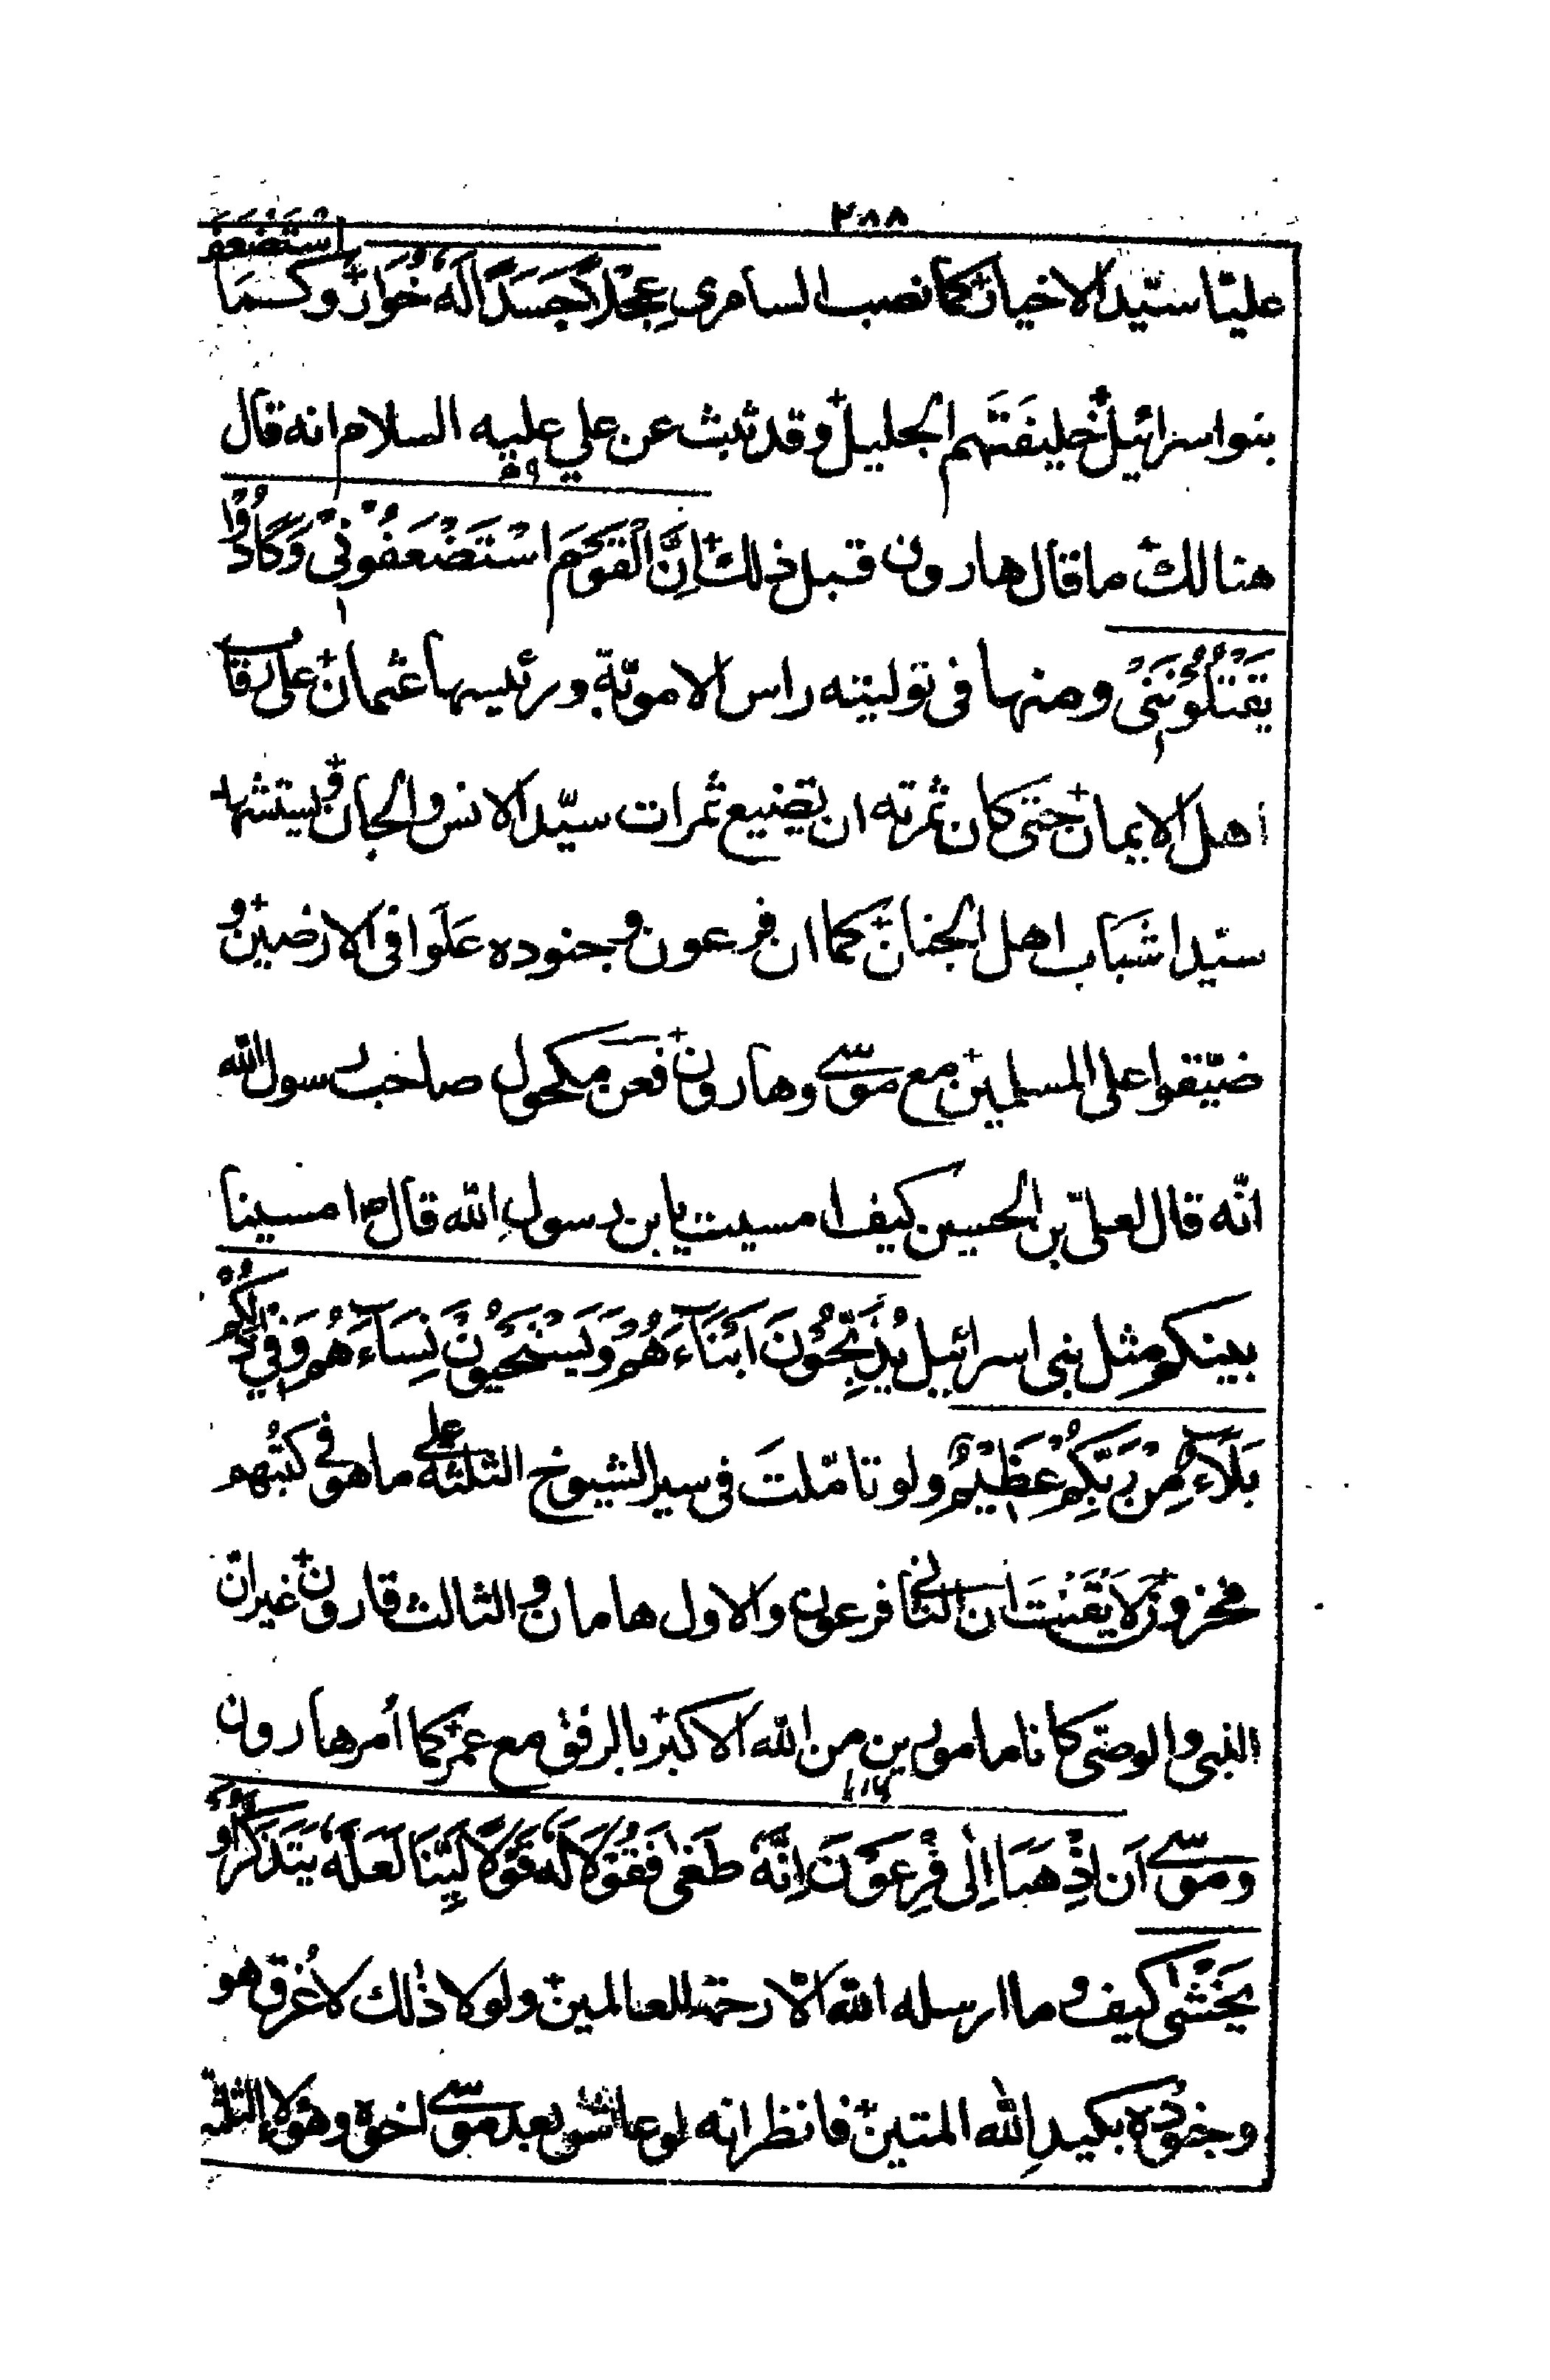 ٢٨٨
عليّا سيّد الاخيار كما نصب السامري عِجْلًا جَسَدًا لَهٗ خُوَارٌ وكَمَا استَضْعَفَ
بنو اسرائيل خليفَتَهم الجليل وقد ثبت عن علي عليه السلام انه قال
هنالك ما قال هارون قبل ذلك اِنَّ الْقَوْمَ اسْتَضْعَفُوْنِیْ وَكَادُوْا
يَقْتُلُوْنَنِیْ ومنها فی توليته راس الامويّة ورئيسها عثمان على رقاب
اهل الايمان حتى كان ثمرته ان يضيع ثمرات سيّد الانس والجان ويستشهد
سيّدا شَبَاب اهل الجنان كما ان فرعون وجنوده عَلَوا فی الارضين و
ضيّقوا على المسلمين مع موسى وهارون فعن مكحول صاحب رسول الله
انّه قال لعلیّ بن الحسين كيف امسيت يا بن رسولِ الله قال امسينا
بينكم مثل بنی اسرائيل يُذَبِّحُوْنَ اَبْنَآءَهُمْ وَيَسْتَحْيُوْنَ نِسَآءَهُمْ وَفِیْ ذٰلِكُمْ
بَلَآءٌ مِنْ رَبِّكُمْ عَظِيْمٌ ولو تامّلتَ فی سير الشيوخ الثلثة على ما هو فی كتبُهم
مخزون لَاَيْقَنْتَ ان الثانی فرعون والاول هامان والثالث قارون غير انّ
النبی والوصی كانا مامورين من الله الاكبر بالرفق مع عمر كما اُمر هارون
وموسى اَن اذْهَبَا اِلٰى فِرْعَوْنَ اِنَّهٗ طَغٰى فَقُوْلَا لَهٗ قَوْلًا لَيِّنًا لَعَلَّهٗ يَتَذَكَّرُ اَوْ
يَخْشٰى كيف وما ارسله الله الّا رحمة للعالمين ولولا ذٰلك لاُغرق هو
وجنوده بكيدِ الله المتين فانظر انه لو عاش بعد موسى اخوه وهؤلاء الثلثة